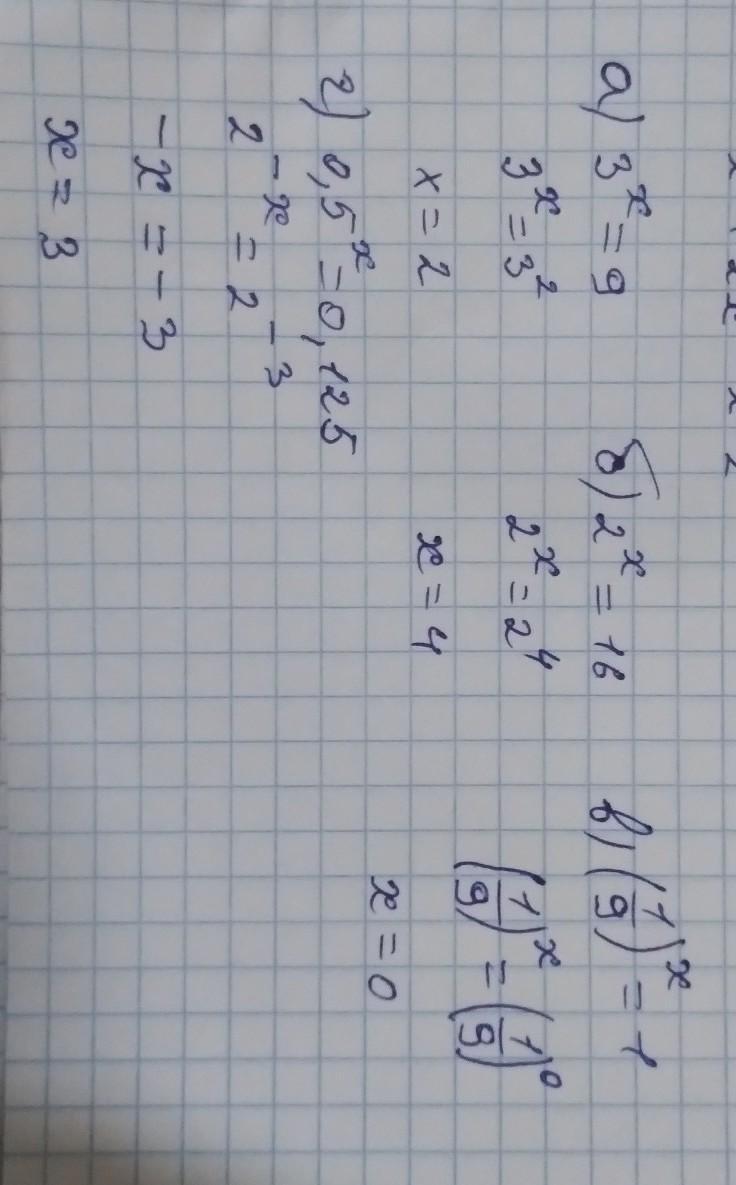 а) 3^x = 9
3^x = 3^2
x = 2
б) 2^x = 16
2^x = 2^4
x = 4
в) (1/9)^x = 1
(1/9)^x = (1/9)^0
x = 0
г) 0,5^x = 0,125
2^-x = 2^-3
-x = -3
x = 3